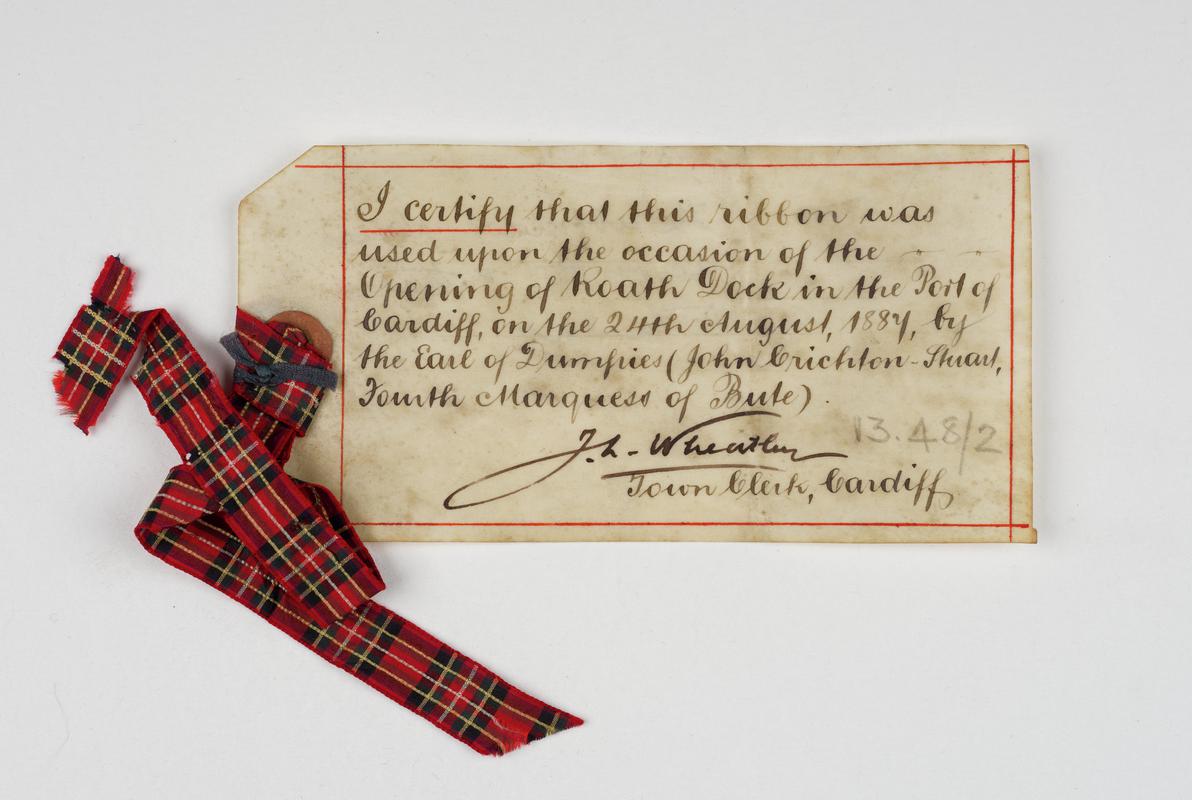 I certify that this ribbon was
used upon the occasion of the
Opening of Roath Dock in the Port of
Cardiff, on the 24th August, 1887, by
the Earl of Dumfries (John Crichton-Stuart,
Fourth Marquess of Bute).
J. L. Wheatley
13.48/2
Town Clerk, Cardiff